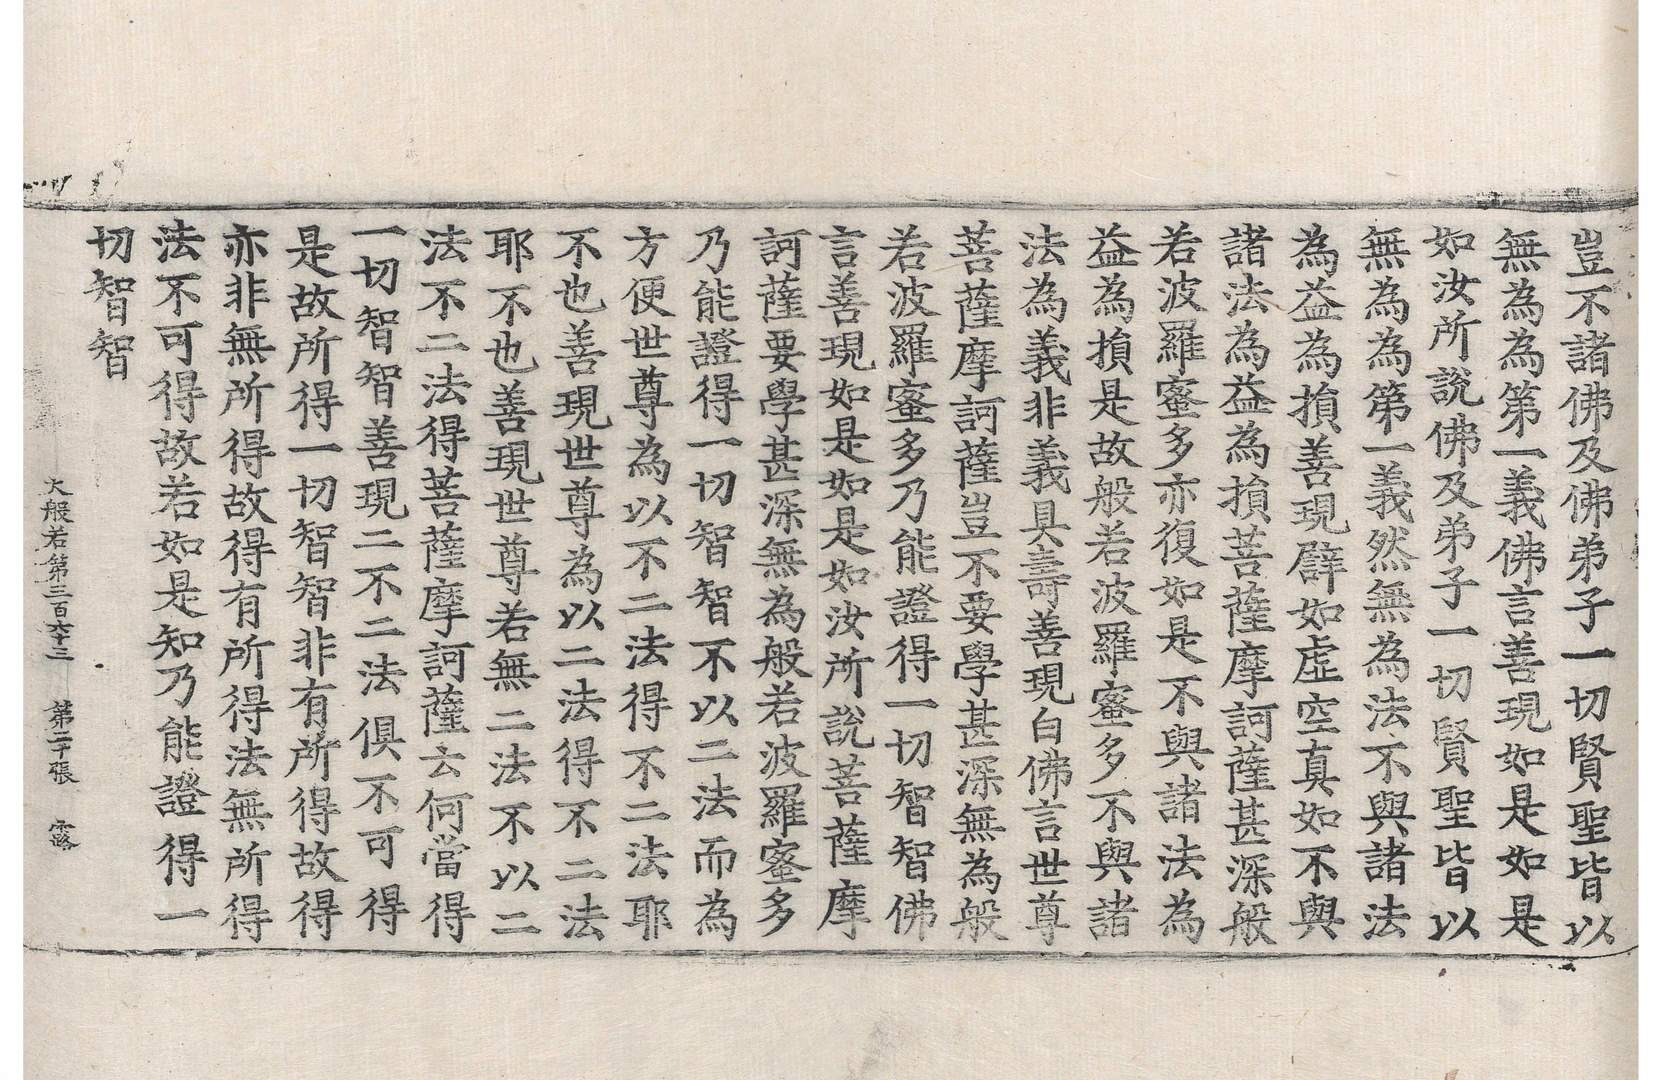 豈不諸佛及佛弟子一切賢聖皆以
無為為第一義佛言善現如是如是
如汝所說佛及弟子一切賢聖皆以
無為為第一義然無為法不與諸法
為益為損善現譬如虛空真如不與
諸法為益為損菩薩摩訶薩甚深般
若波羅蜜多亦復如是不與諸法為
益為損是故般若波羅蜜多不與諸
法為義非義具壽善現白佛言世尊
菩薩摩訶薩豈不要學甚深無為般
若波羅蜜多乃能證得一切智智佛
言善現如是如是如汝所說菩薩摩
訶薩要學甚深無為般若波羅蜜多
乃能證得一切智智不以二法而為
方便世尊為以不二法得不二法耶
不也善現世尊為以二法得不二法
耶不也善現世尊若無二法不以二
法不二法得菩薩摩訶薩云何當得
一切智智善現二不二法俱不可得
是故所得一切智智非有所得故得
亦非無所得故得有所得法無所得
法不可得故若如是知乃能證得一
切智智
大般若第三百六十三 第二十張 露